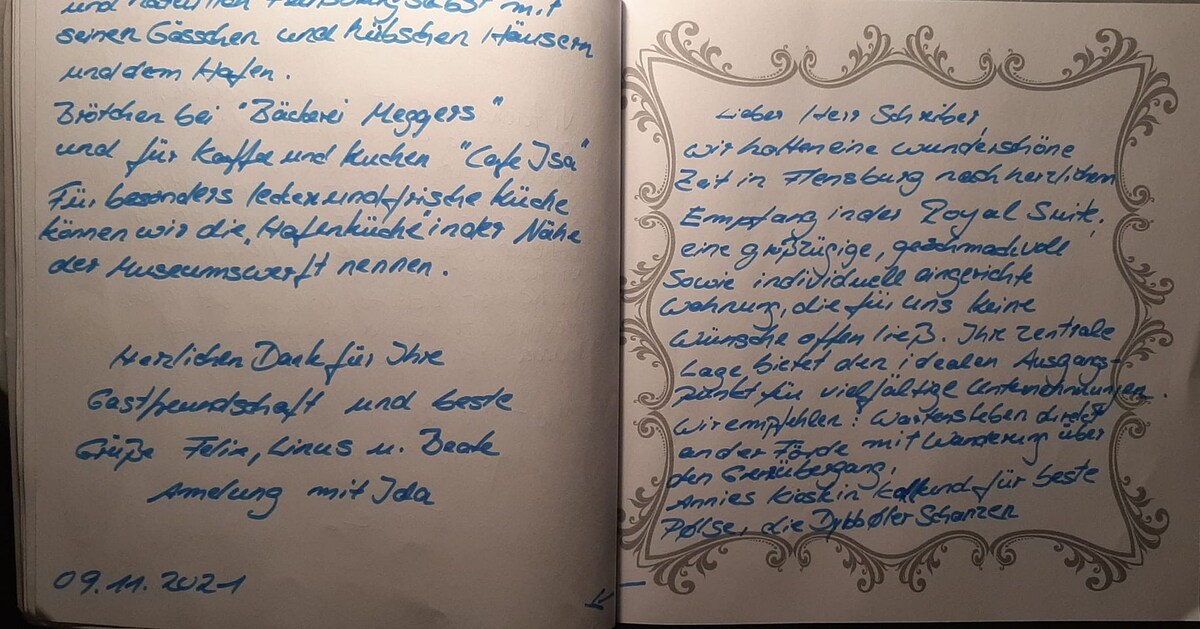 und natürlich Flensburg selbst mit
seinen Gässchen und hübschen Häusern
und dem Hafen.
Brötchen bei "Bäckerei Meggers"
und für Kaffee und Kuchen "Cafe Isa"
Für besonders leckere und frische Küche
können wir die "Hafenküche" in der Nähe
der Museumswerft nennen.
Herzlichen Dank für Ihre
Gastfreundschaft und beste
Grüße Felix, Linus u. Beate
Amelung mit Ida
09.11.2021
Lieber Herr Schreiber,
wir hatten eine wunderschöne
Zeit in Flensburg nach herzlichem
Empfang in der Royal Suite,
eine großzügige, geschmackvoll
sowie individuell eingerichte
Wohnung, die für uns keine
Wünsche offen ließ. Ihre zentrale
Lage bietet den idealen Ausgangs-
punkt für vielfältige Unternehmungen.
Wir empfehlen: Wassersleben direkt
an der Förde mit Wanderung über
den Grenzübergang,
Annies Kiosk in Kollund für beste
Pølse, die Dybbøler Schanzen